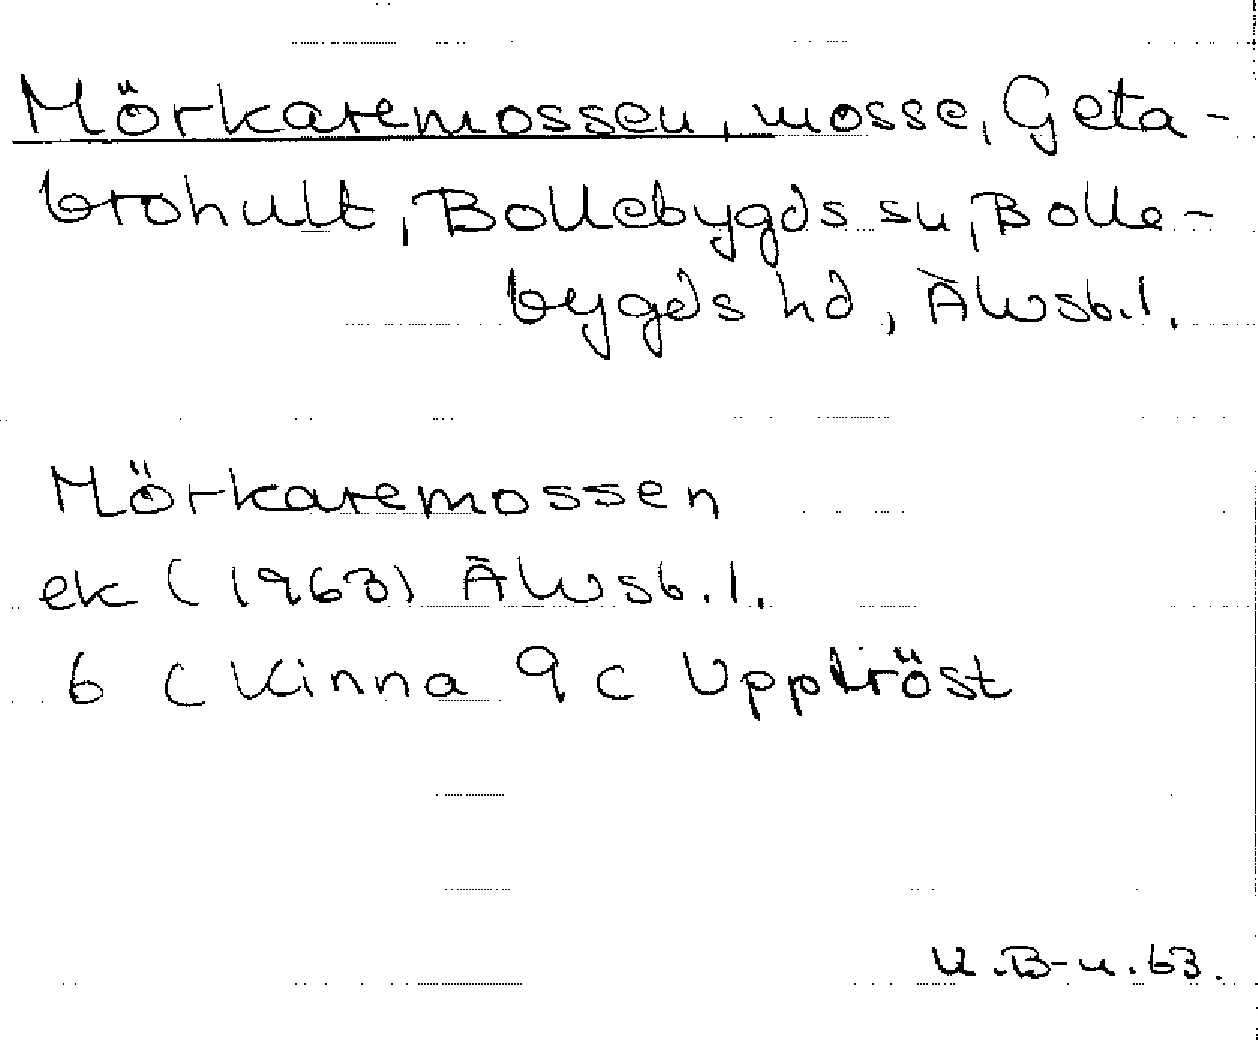 Mörkaremossen, mosse, Geta-
brohult, Bollebygds sn, Bolle-
bygds hd, Älvsb.l.
Mörkaremossen
ek (1963) Älvsb.l.
6 ( Kinna 9 c Upptröst
K.B-n.63.